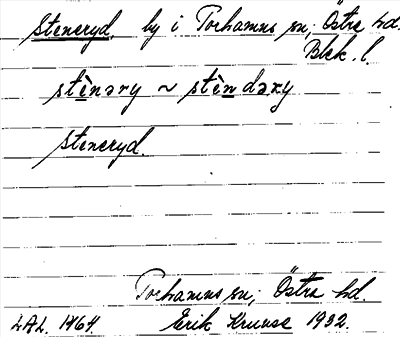 Steneryd, by i Torhamns sn; Östra hd.
Blek. l.
stènəry ~ stèndəxy
Steneryd.
Torhamns sn; Östra hd.
LAL. 1464. Erik Kruuse 1932.